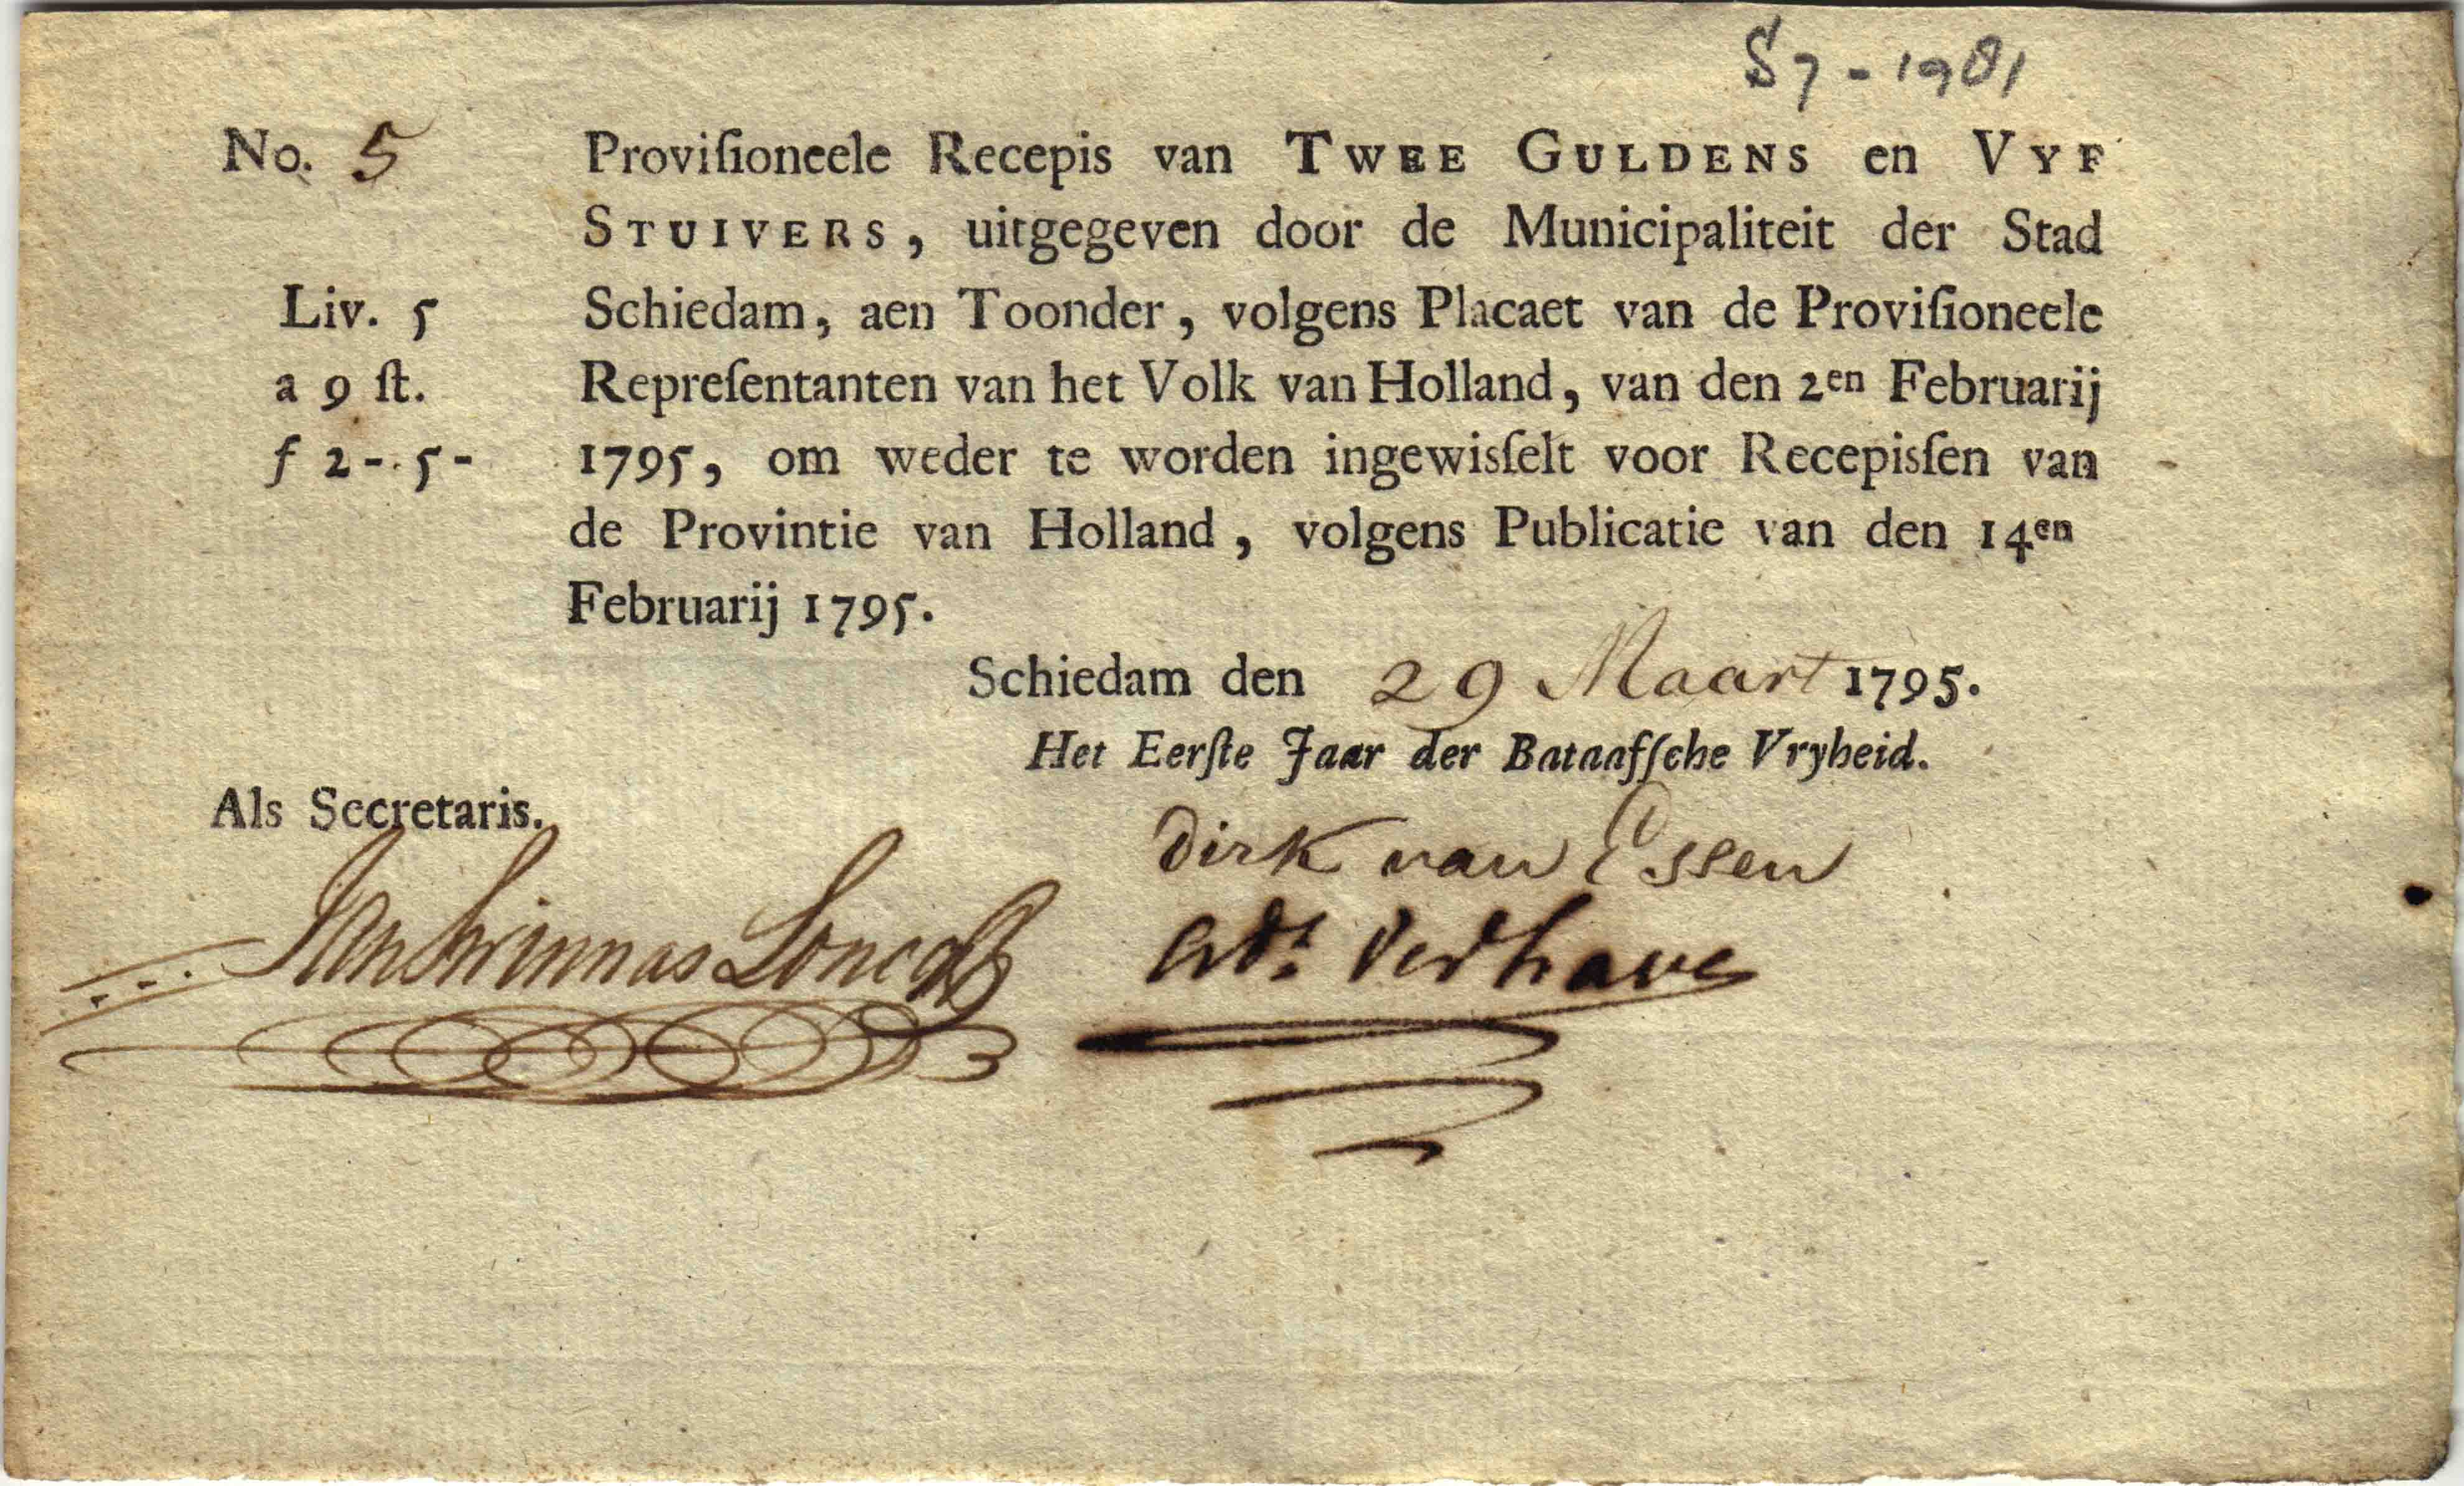 S7-1981
No. 5 Proviſioneele Recepis van TWEE GULDENS en VYF
STUIVERS, uitgegeven door de Municipaliteit der Stad
Liv. 5 Schiedam, aen Toonder, volgens Placaet van de Proviſioneele
a 9 ſt. Repreſentanten van het Volk van Holland, van den 2en Februarij
f 2-.5- 1795, om weder te worden ingewisſelt voor Recepisſen van
de Provintie van Holland, volgens Publicatie van den 14en
Februarij 1795.
Schiedam den 29 Maart 1795.
Het Eerſte Jaar der Bataafſche Vryheid.
Als Secretaris.
Dirk van Essen
Jan
Adr. Verhave